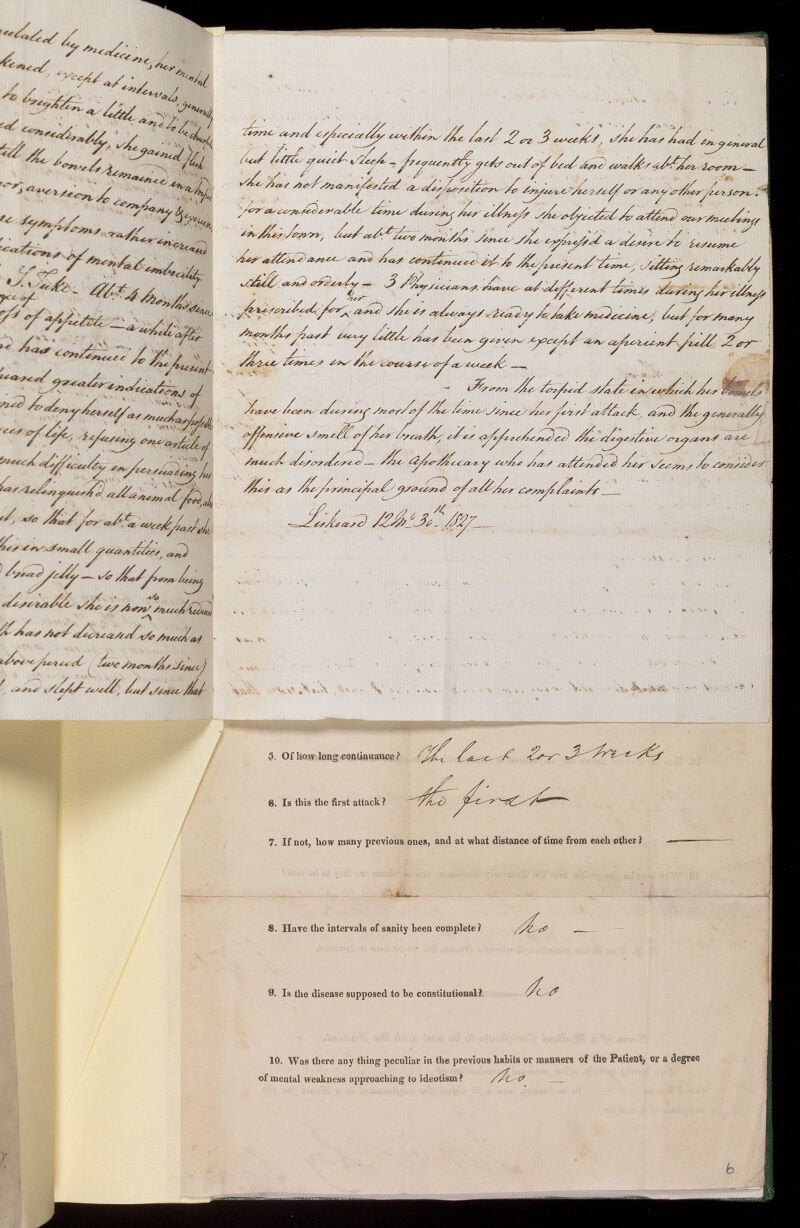 ulated by medicine, her mental
kened, except at intervals, generally
to brighten a little and to be cheerful
ed considerably, she gained flesh
till the bowels remained in a
or, aversion to company &
se symptoms rather increased
ications of mental imbecility
S. Tuke - Abt. 4 Months since
ge of
oss of appetite — a while after
ne has continued to the present
peared greater indications of
ned to deny herself as much as possible
ces of life, refusing one article of
much difficulty in persuading her
has relinquish'd all animal food, also
it, so that for abt. a week past she
this in small quantities, and
bread jelly — so that from being
desirable she is now so much reduced
h has not decreased so much as
above period (two months since)
, and slept well, but since that
time and especially within the last 2 or 3 weeks, she has had in general
but little quiet sleep – frequently gets out of bed and walks abt. her room –
She has not manifested a disposition to injure herself or any other person.
for a considerable time during her illness she objected to attend our meetings
in this town, but abt. two months since she express'd a desire to resume
her attendance and has continued it to the present time, sitting remarkably
still and orderly – 3 Physicians have at different times during her illness
prescribed for her and she is always ready to take medicine, but for many
months past very little has been given except an aperient pill 2 or
three times in the course of a week —
- From the torpid state in which her bowels
have been during most of the time since her first attack, and the generally
offensive smell of her breath, it is apprehended the digestive organs are
much disordered – the apothecary who has attended her seems to consider
this as the principal ground of all her complaints —
Liskeard 12 Mo. 30th. 1827 —
5. Of how long continuance? The last 2 or 3 weeks
6. Is this the first attack? the first
7. If not, how many previous ones, and at what distance of time from each other? —
8. Have the intervals of sanity been complete? No —
9. Is the disease supposed to be constitutional? No
10. Was there any thing peculiar in the previous habits or manners of the Patient, or a degree
of mental weakness approaching to ideotism? No. —
6